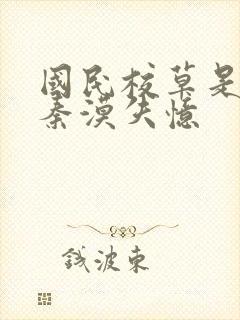 國民校草是
秦漠失憶
錢波東